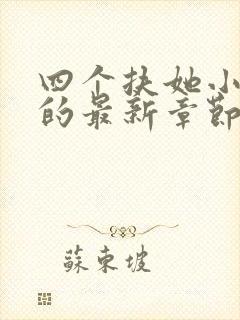 四个扶她小
的最新章節
蘇東坡